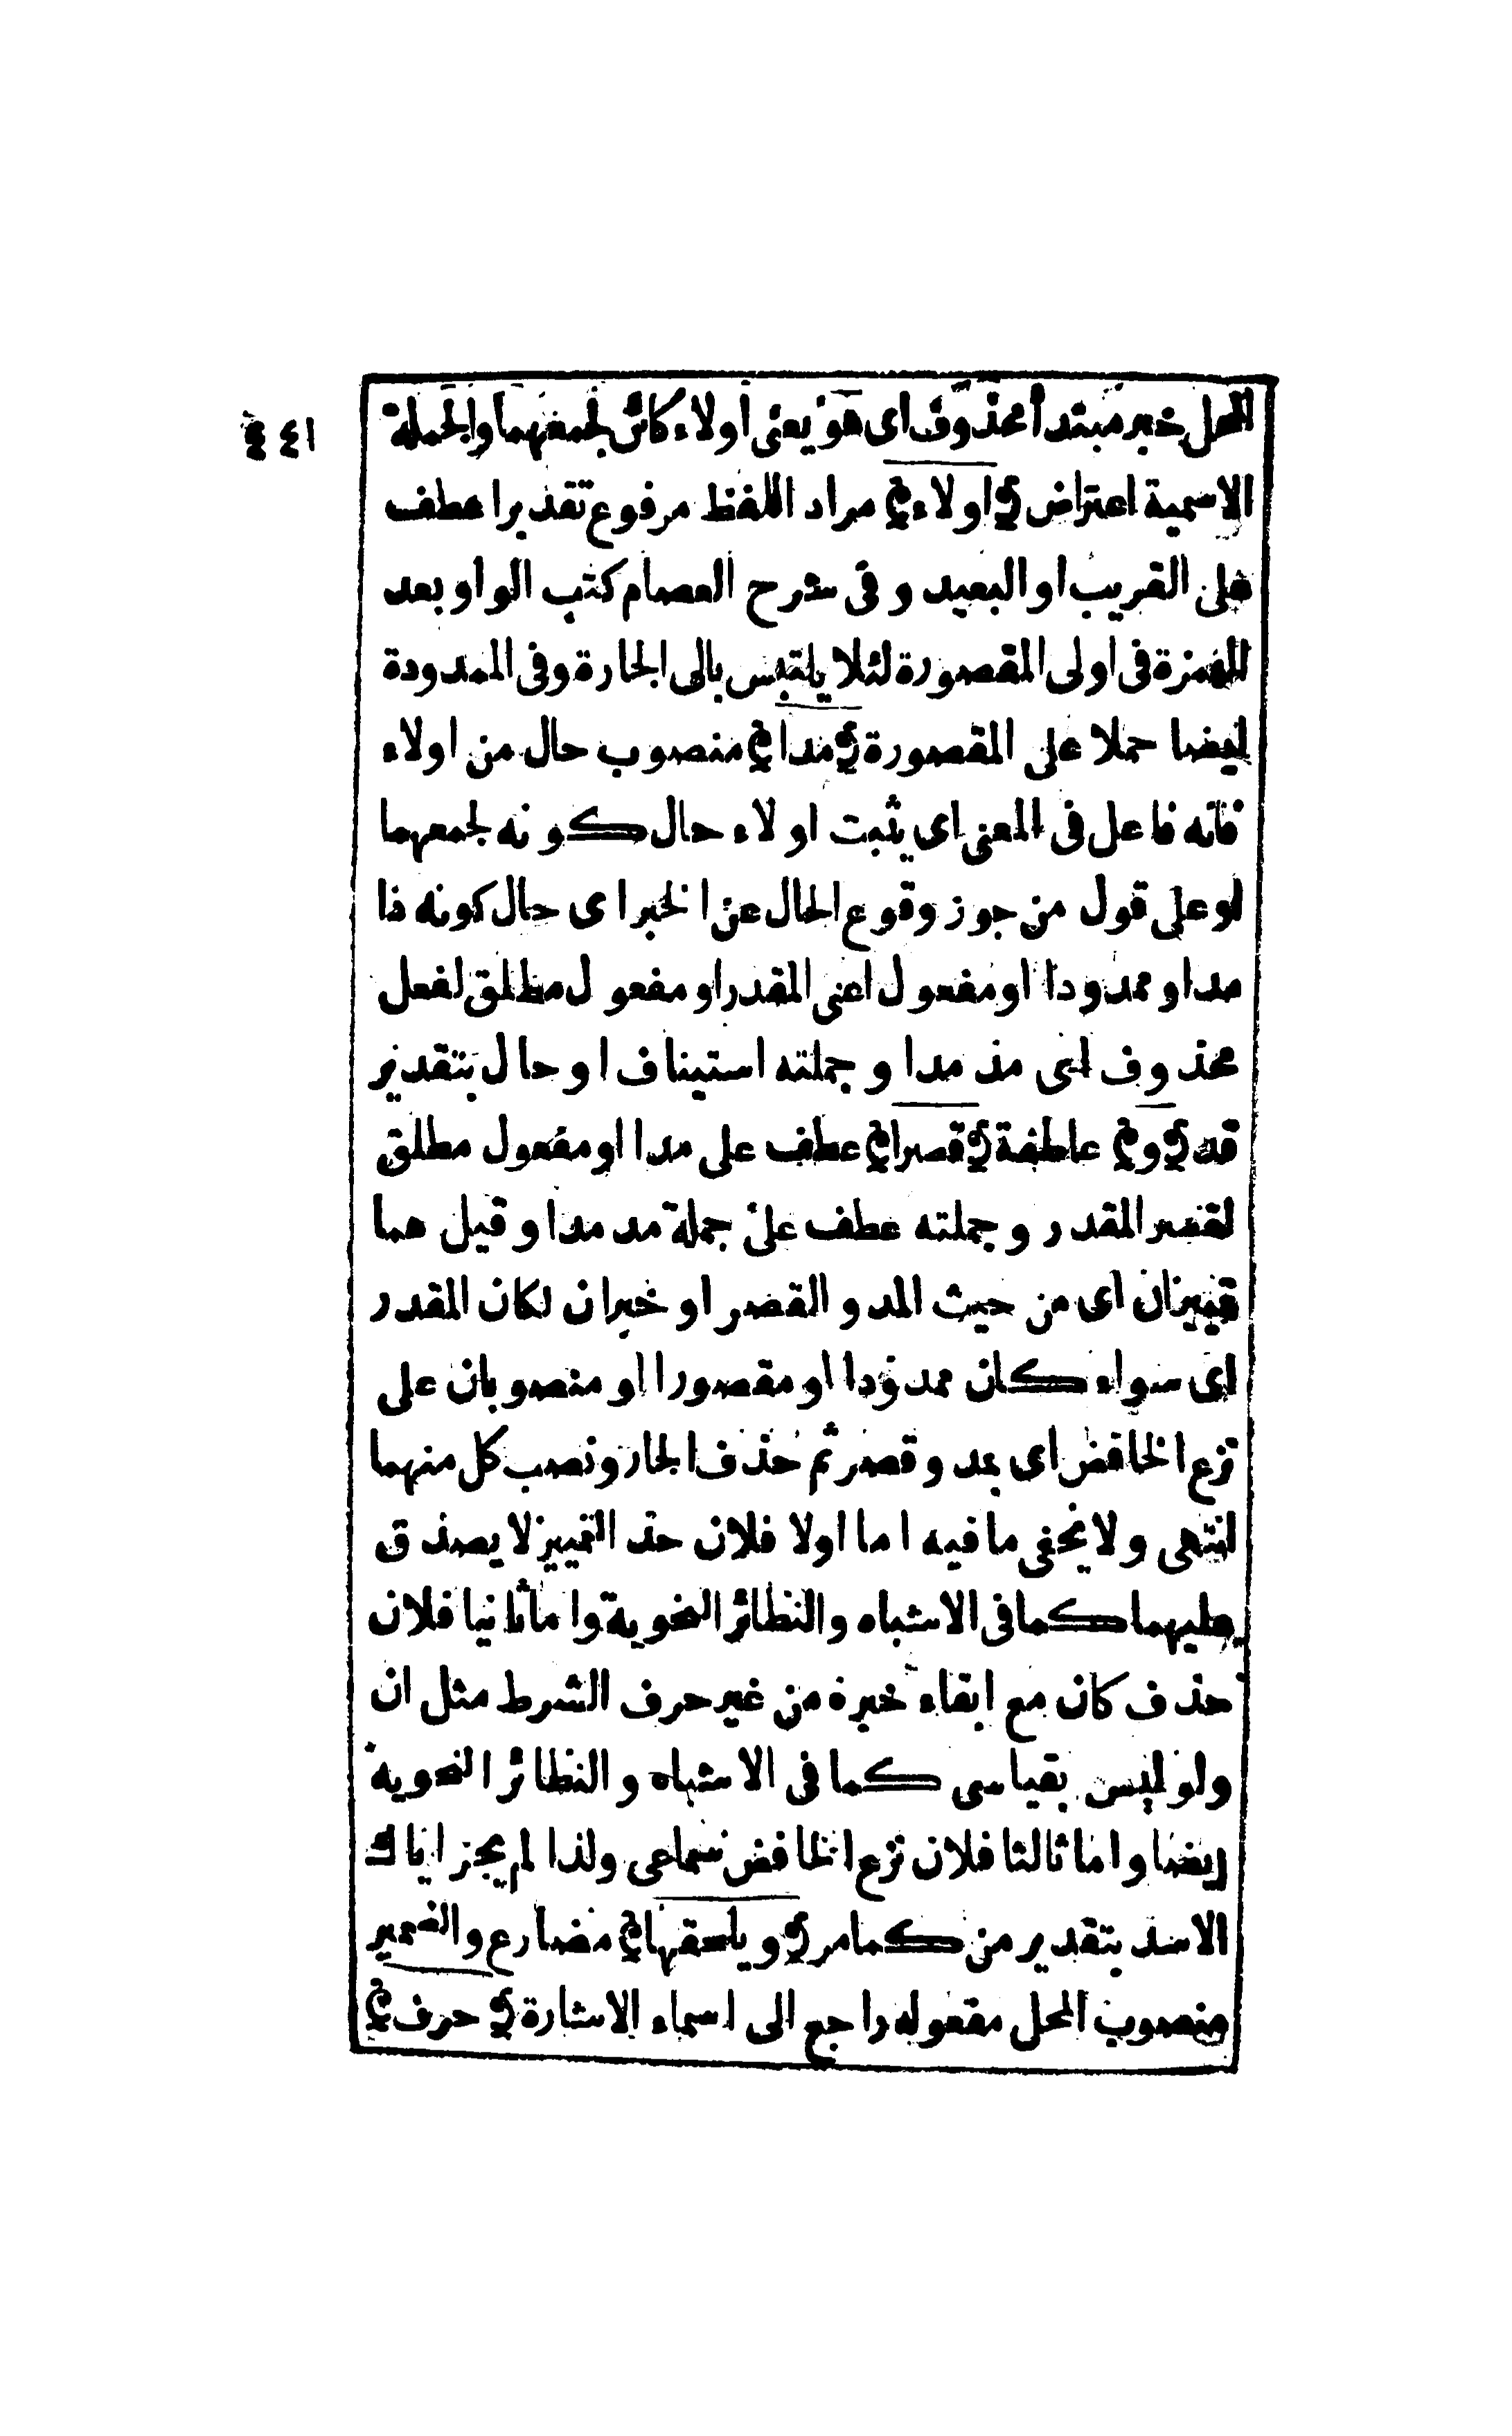 المحل خبر مبتدأ محذوف اى هو يعنى اولاء كائن لجمعهما والجملة
٢٤١
الاسمية اعتراض ﴿اولاء﴾ مراد اللفظ مرفوع تقديرا عطف
على القريب او البعيد وفى شرح العصام كتب الواو بعد
الهمزة فى اولى المقصورة لئلا يلتبس بالى الجارة وفى الممدودة
ايضا حملا على المقصورة ﴿مدا﴾ منصوب حال من اولاء
فانه فاعل فى المعنى اى يثبت اولاء حال كونه لجمعهما
او على قول من جوز وقوع الحال عن الخبر اى حال كونه ذا
مد او ممدودا او مفعول اعنى المقدر او مفعول مطلق لفعل
محذوف اى مد مدا وجملته استيناف او حال بتقدير
قد ﴿و﴾ عاطفة ﴿قصرا﴾ عطف على مدا او مفعول مطلق
لقصر المقدر وجملته عطف على جملة مد مدا وقيل هما
تمييزان اى من حيث المد والقصر او خبران لكان المقدر
اى سواء كان ممدودا او مقصورا او منصوبان على
نزع الخافض اى بمد وقصر ثم حذف الجار ونصب كل منهما
انتهى ولا يخفى ما فيه اما اولا فلان حد التمييز لا يصدق
عليهما كما فى الاشباه والنظائر النحوية واما ثانيا فلان
حذف كان مع ابقاء خبره من غير حرف الشرط مثل ان
ولو ليس بقياسى كما فى الاشباه والنظائر النحوية
ايضا واما ثالثا فلان نزع الخافض سماعى ولذا لم يجز اياك
الاسد بتقدير من كما مر ﴿ويلحقها﴾ مضارع والضمير
منصوب المحل مفعوله راجع الى اسماء الاشارة ﴿حرف﴾